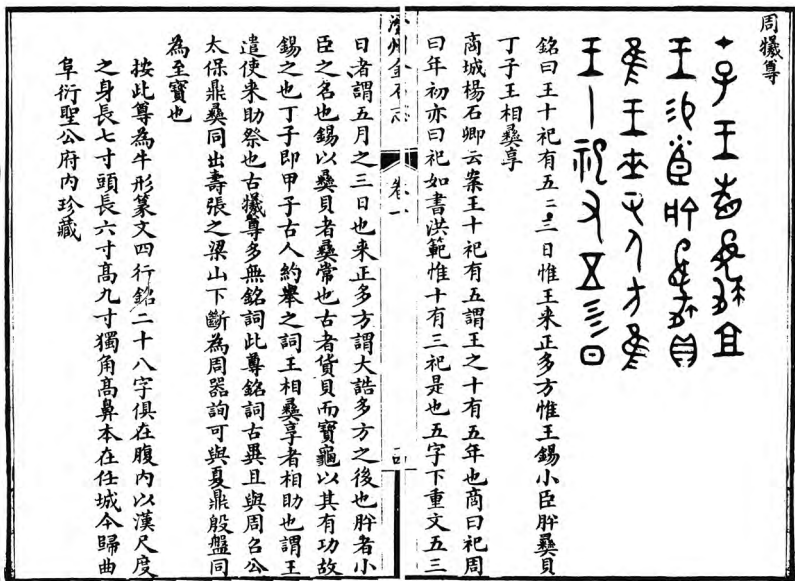 周犧尊
銘曰王十祀有五二三日惟王来正多方惟王錫小臣彝貝
丁子王相彝享
商城楊石卿云案王十祀有五謂王之十有五年也商曰祀周
曰年初亦曰祀如書洪範惟十有三祀是也五字下重文五三
濟州金石志
卷一
日者謂五月之三日也来正多方謂大誥多方之後也者小
臣之名也錫以彝貝者彝常也古者貨貝而寶龜以其有功故
錫之也丁子即甲子古人約舉之詞王相彝享者相助也謂王
遣使来助祭也古犧尊多無銘詞此尊銘詞古異且與周召公
太保鼎彝同出壽張之梁山下斷為周器詢可與夏鼎殷盤同
為至寶也
按此尊為牛形篆文四行銘二十八字俱在腹內以漢尺度
之身長七寸頭長六寸高九寸獨角高鼻本在任城今歸曲
阜衍聖公府内珍藏